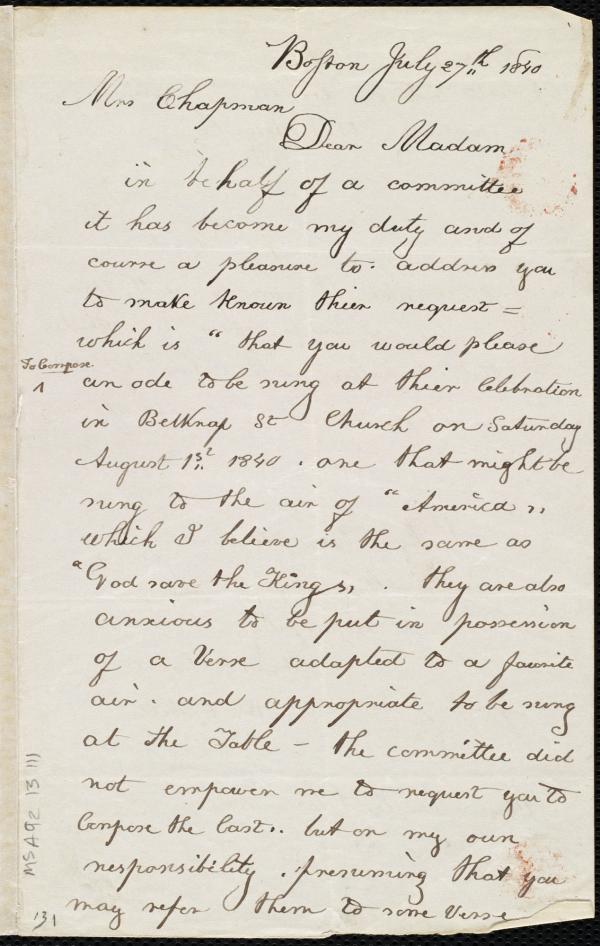 Boston July 27th 1840
Mrs Chapman
Dear Madam
in behalf of a committee
it has become my duty and of
course a pleasure to. address you
to make known thier request =
which is " that you would please
To Compose
^
an ode to be sung at thier Celebration
in Belknap St Church on Saturday
August 1st 1840. one that might be
sung to the air of " America "
which I believe is the same as
" God save the King ". they are also
anxious to be put in possession
of a Verse adapted to a favorite
air. and appropriate to be sung
at the Table - the committee did
not empower me to request you to
Compose the last.. but on my own
responsibility. presuming that you
may refer them to some Verse
MS A 9.2 13 111
131